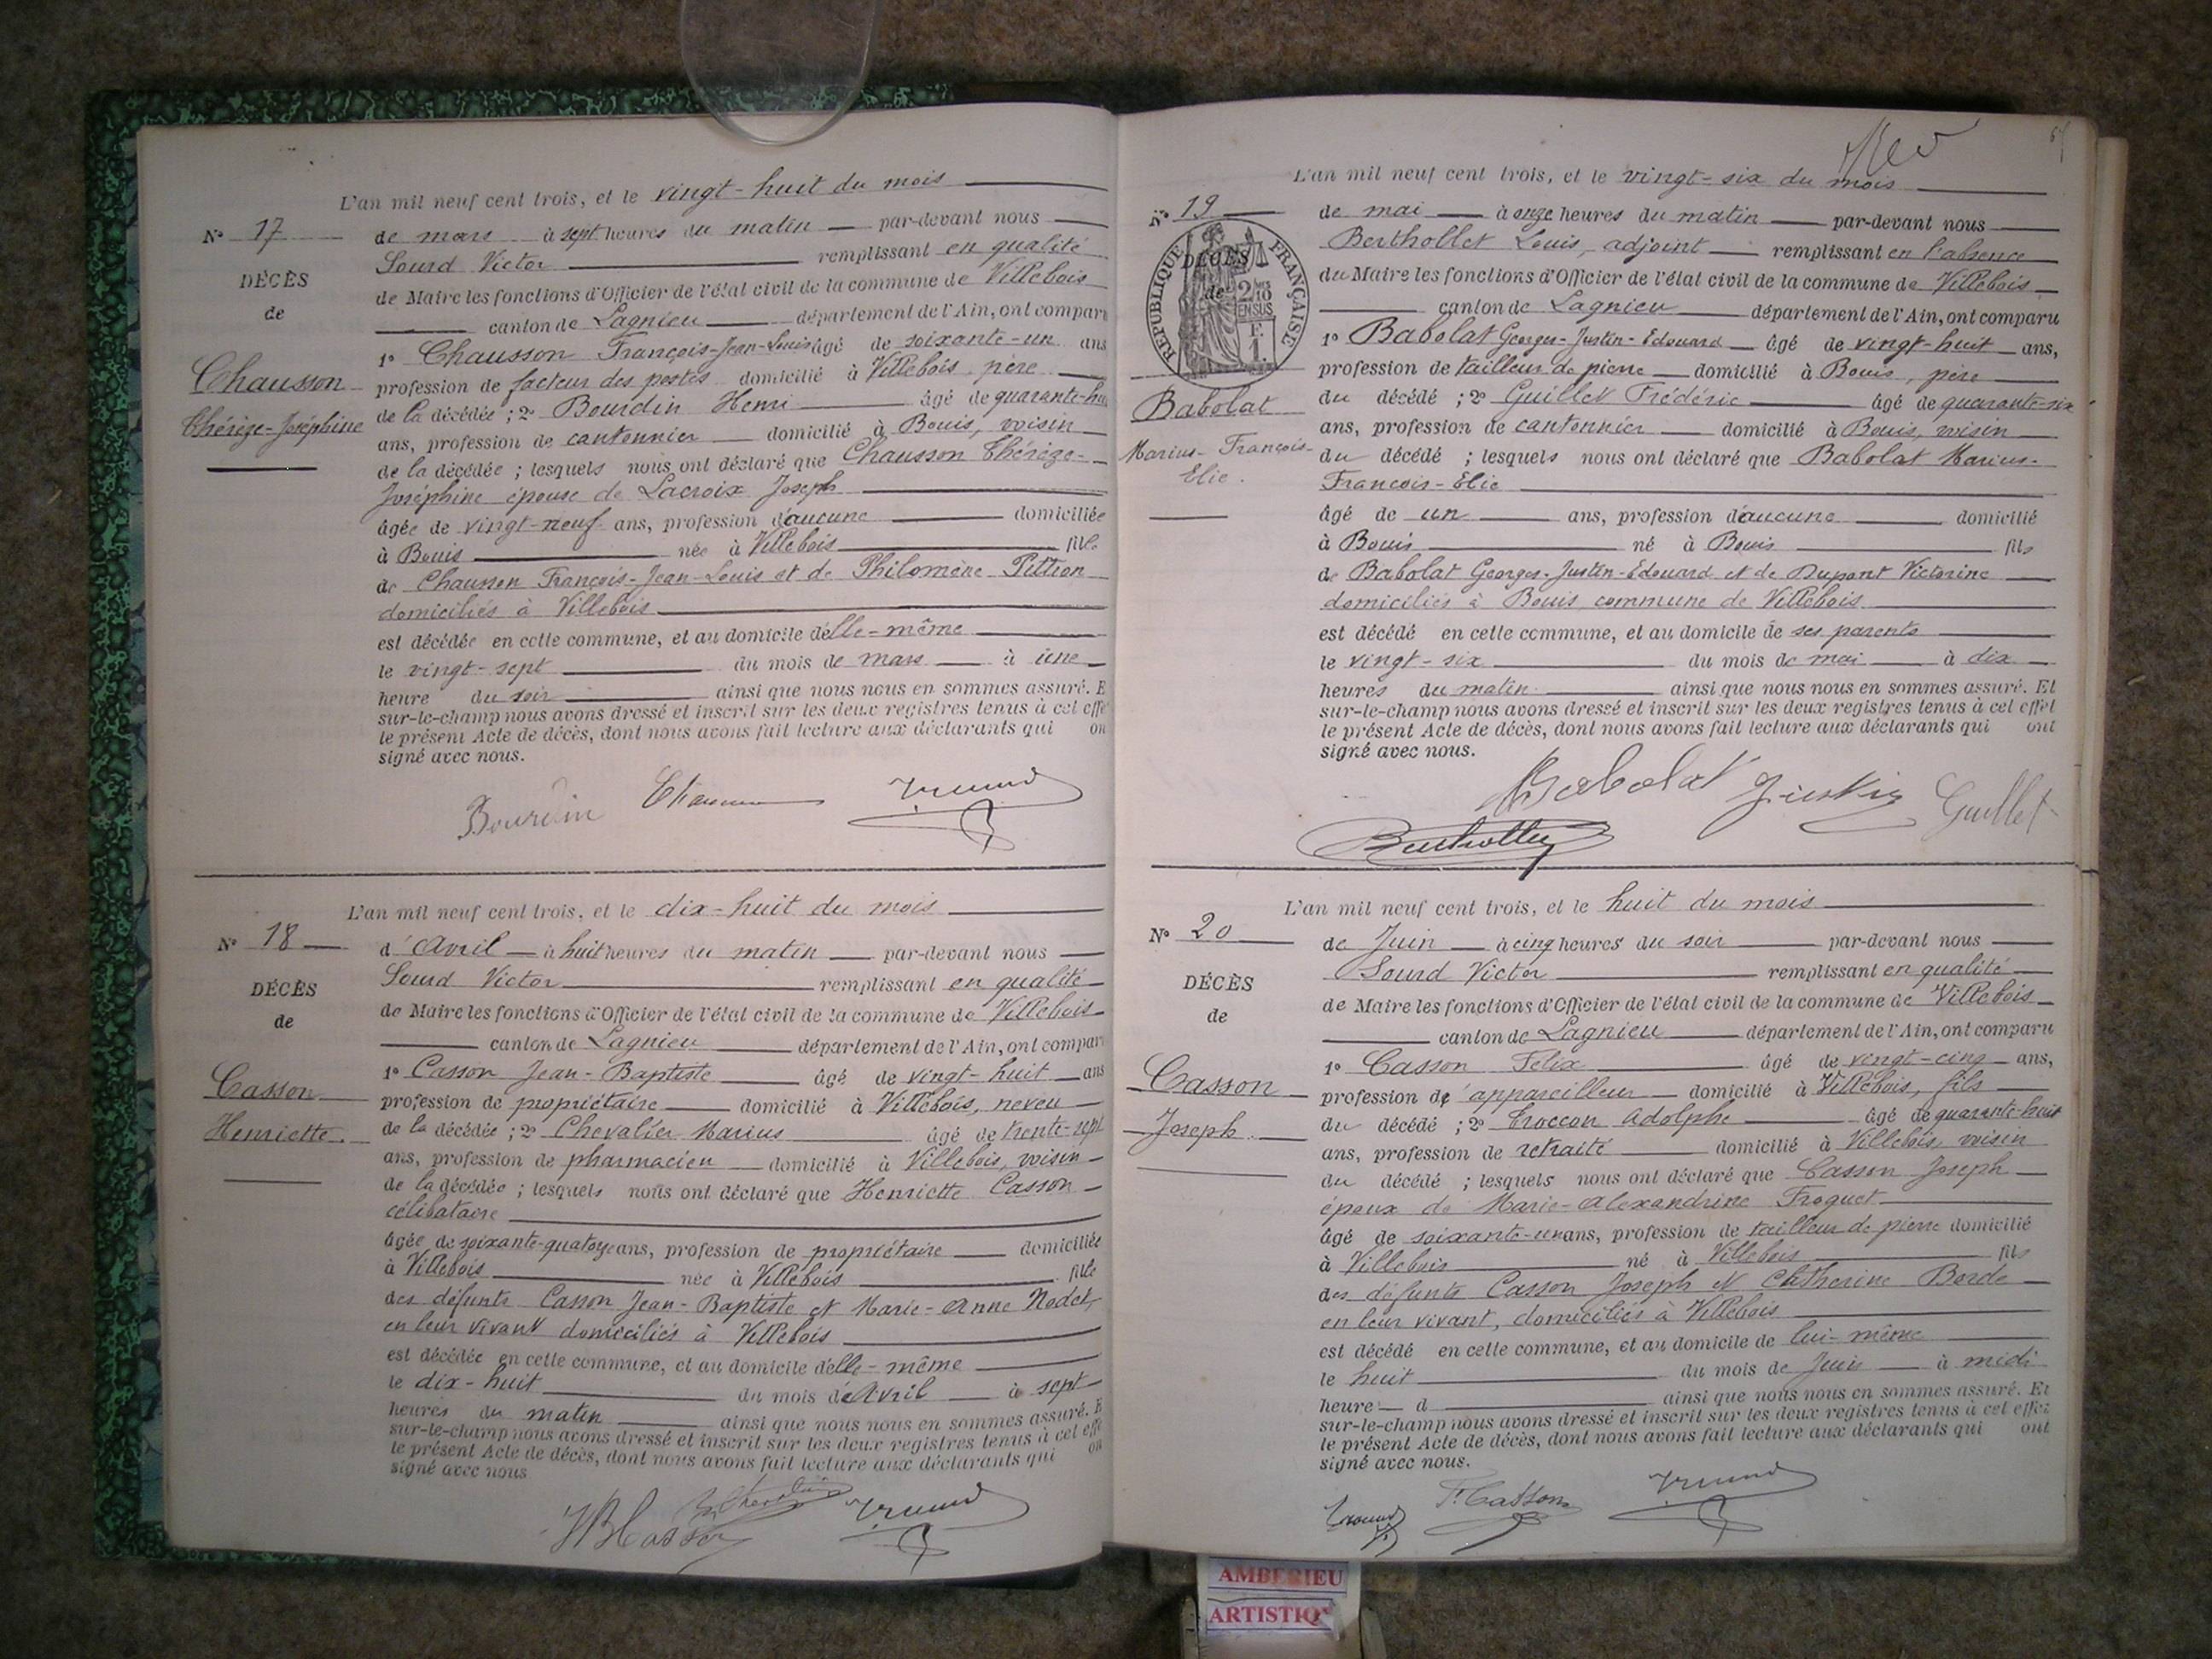 L'an mil neuf cent trois, et le vingt-huit du mois
N° 17
de mars à sept heures du matin par-devant nous
Sourd Victor remplissant en qualité
DÉCÈS
de Maire les fonctions d'Officier de l'état civil de la commune de Villebois
de
canton de Lagnieu département de l'Ain, ont comparu
1° Chausson François-Jean-Louis âgé de soixante-un ans
Chausson
profession de facteur des postes domicilié à Villebois, père
Thérèze-Joséphine
de la décédée ; 2° Bourdin Henri âgé de quarante-hui
ans, profession de cantonnier domicilié à Bouis, voisin
de la décédée ; lesquels nous ont déclaré que Chausson Thérèze-
Joséphine épouse de Lacroix Joseph
âgée de vingt-neuf ans, profession d'aucune domiciliée
à Bouis née à Villebois fille
de Chausson François-Jean-Louis et de Philomène Pittion
domiciliés à Villebois
est décédée en cette commune, et au domicile d'elle-même
le vingt-sept du mois de mars à une
heure du soir ainsi que nous nous en sommes assuré. E
sur-le-champ nous avons dressé et inscrit sur les deux registres tenus à cet effe
le présent Acte de décès, dont nous avons fait lecture aux déclarants qui on
signé avec nous.
Bourdin Chausson
L'an mil neuf cent trois, et le dix-huit du mois
N° 18
d'Avril à huit heures du matin par-devant nous
Sourd Victor remplissant en qualité
DÉCÈS
de Maire les fonctions d'Officier de l'état civil de la commune de Villebois
de
canton de Lagnieu département de l'Ain, ont compar
1° Casson Jean-Baptiste âgé de vingt-huit ans
Casson
profession de propriétaire domicilié à Villebois, neveu
Henriette.
de la décédée ; 2° Chevalier Marius âgé de trente-sept
ans, profession de pharmacien domicilié à Villebois, voisin
de la décédée ; lesquels nous ont déclaré que Henriette Casson
célibataire
âgée de soixante-quatorze ans, profession de propriétaire domiciliée
à Villebois née à Villebois fille
des défunts Casson Jean-Baptiste et Marie-Anne Nodet,
en leur vivant domiciliés à Villebois
est décédée en cette commune, et au domicile d'elle-même
le dix-huit du mois d'Avril à sept
heures du matin ainsi que nous nous en sommes assuré. E
sur-le-champ nous avons dressé et inscrit sur les deux registres tenus à cet effe
le présent Acte de décès, dont nous avons fait lecture aux déclarants qui on
signé avec nous
JB Casson Chevalier
L'an mil neuf cent trois, et le vingt-six du mois
N° 19
de mai à onze heures du matin par-devant nous
Berthollet Louis, adjoint remplissant en l'absence
RÉPUBLIQUE FRANÇAISE
DÉCÈS
de
2 10 EN SUS
du Maire les fonctions d'Officier de l'état civil de la commune de Villebois
canton de Lagnieu département de l'Ain, ont comparu
1° Babolat Georges-Justin-Edouard âgé de vingt-huit ans,
profession de tailleur de pierre domicilié à Bouis, père
Babolat
du décédé ; 2° Guillet Frédéric âgé de quarante-six
ans, profession de cantonnier domicilié à Bouis, voisin
Marius-François-
du décédé ; lesquels nous ont déclaré que Babolat Marius-
Elie.
François-Elie
âgé de un ans, profession d'aucune domicilié
à Bouis né à Bouis fils
de Babolat Georges-Justin-Edouard et de Dupont Victorine
domiciliés à Bouis commune de Villebois
est décédé en cette commune, et au domicile de ses parents
le vingt-six du mois de mai à dix
heures du matin ainsi que nous nous en sommes assuré. Et
sur-le-champ nous avons dressé et inscrit sur les deux registres tenus à cet effet
le présent Acte de décès, dont nous avons fait lecture aux déclarants qui ont
signé avec nous.
Babolat Justin Guillet
Berthollet
L'an mil neuf cent trois, et le huit du mois
N° 20
de Juin à cinq heures du soir par-devant nous
Sourd Victor remplissant en qualité
DÉCÈS
de Maire les fonctions d'Officier de l'état civil de la commune de Villebois
de
canton de Lagnieu département de l'Ain, ont comparu
1° Casson Felix âgé de vingt-cinq ans,
Casson
profession d'appareilleur domicilié à Villebois, fils
Joseph.
du décédé ; 2° Troccon Adolphe âgé de quarante-huit
ans, profession de retraité domicilié à Villebois voisin
du décédé ; lesquels nous ont déclaré que Casson Joseph
époux de Marie-Alexandrine Froquet
âgé de soixante-un ans, profession de tailleur de pierre domicilié
à Villebois né à Villebois fils
des défunts Casson Joseph et Catherine Borde
en leur vivant, domiciliés à Villebois
est décédé en cette commune, et au domicile de lui-même
le huit du mois de Juin à midi
heure d ainsi que nous nous en sommes assuré. Et
sur-le-champ nous avons dressé et inscrit sur les deux registres tenus à cet effet
le présent Acte de décès, dont nous avons fait lecture aux déclarants qui ont
signé avec nous.
F. Casson
AMBERIEU
ARTISTIQ